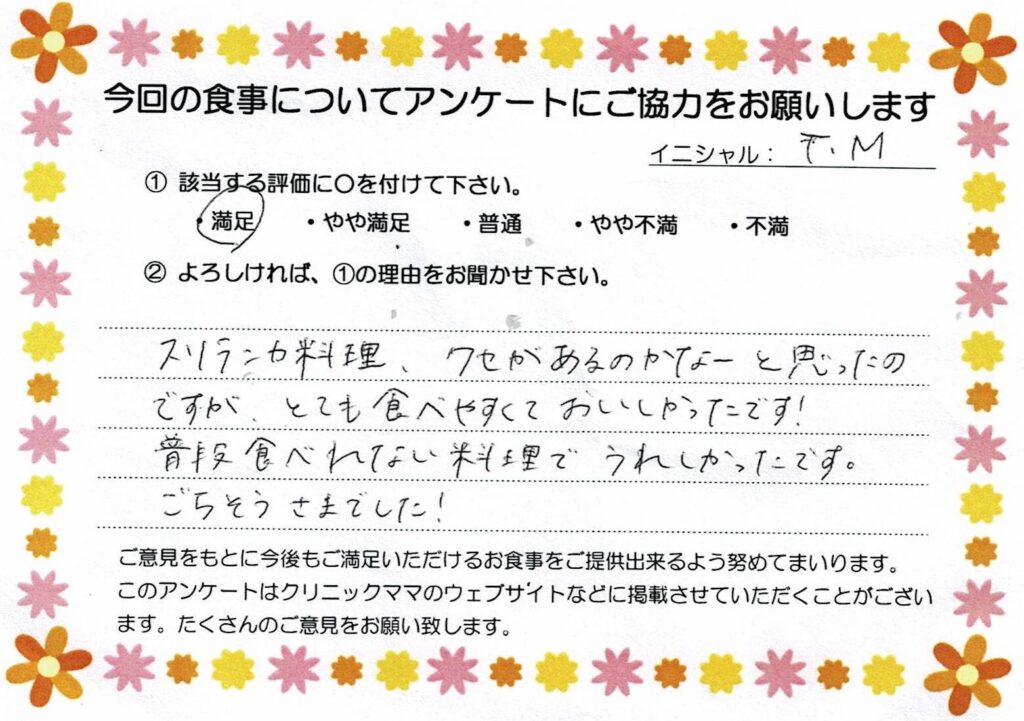 今回の食事についてアンケートにご協力をお願いします
イニシャル： T.M
① 該当する評価に〇を付けて下さい。
・満足 ・やや満足 ・普通 ・やや不満 ・不満
② よろしければ、①の理由をお聞かせ下さい。
スリランカ料理、クセがあるのかなーと思ったの
ですが、とても食べやすくておいしかったです!
普段食べれない料理でうれしかったです。
ごちそうさまでした!
ご意見をもとに今後もご満足いただけるお食事をご提供出来るよう努めてまいります。
このアンケートはクリニックママのウェブサイトなどに掲載させていただくことがござい
ます。たくさんのご意見をお願い致します。